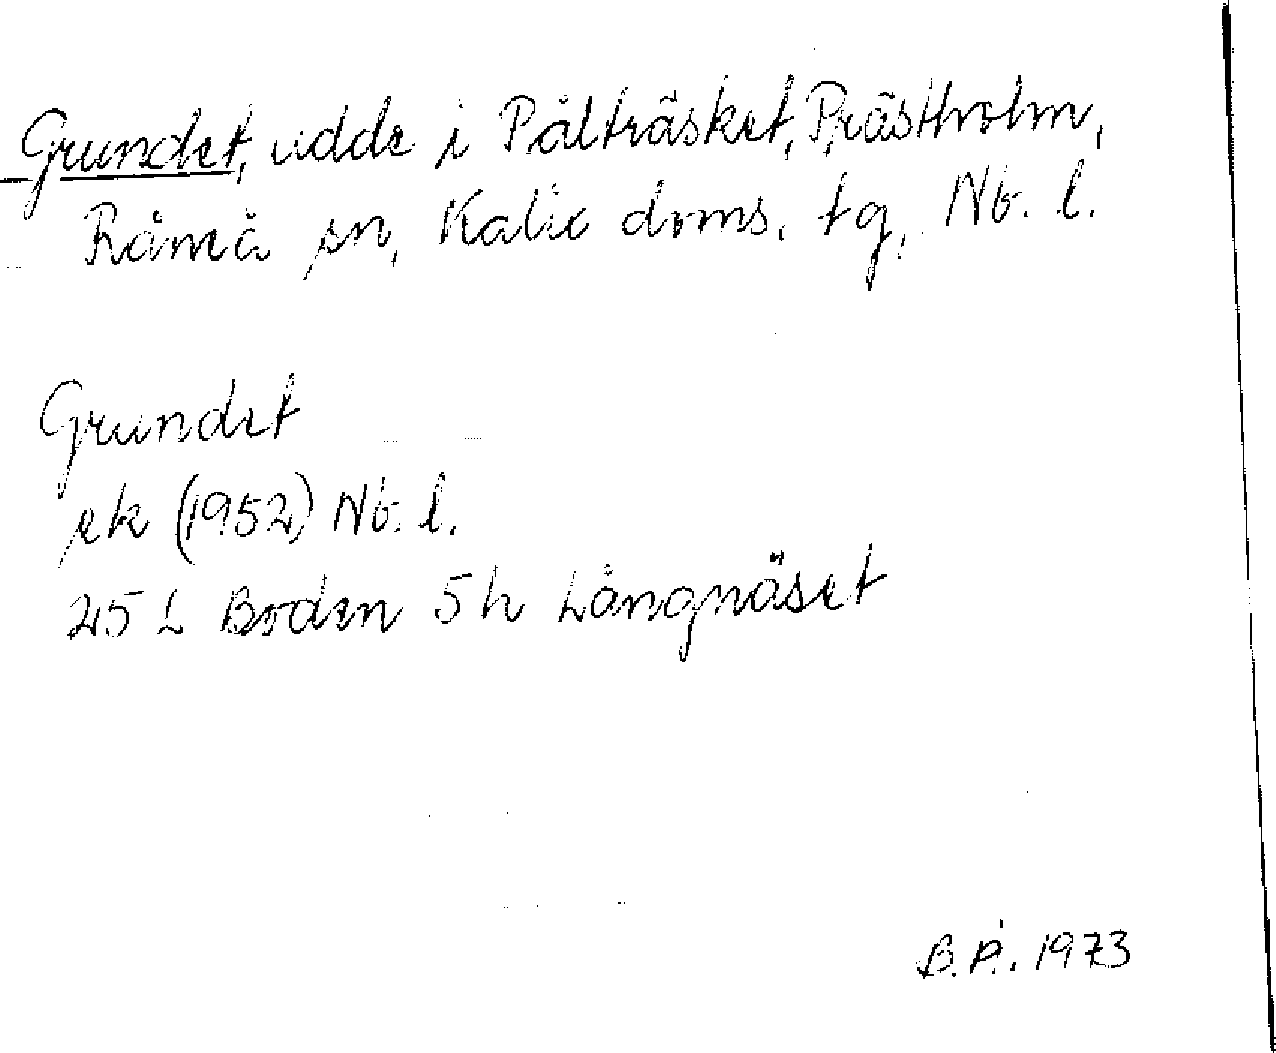 Grundet, udde i Pålträsket, Prästholm,
Råneå sn, Kalix doms. tg, Nb. l.
Grundet
ek (1952) Nb. l.
25 L Boden 5 h Långnäset
B.Å. 1973